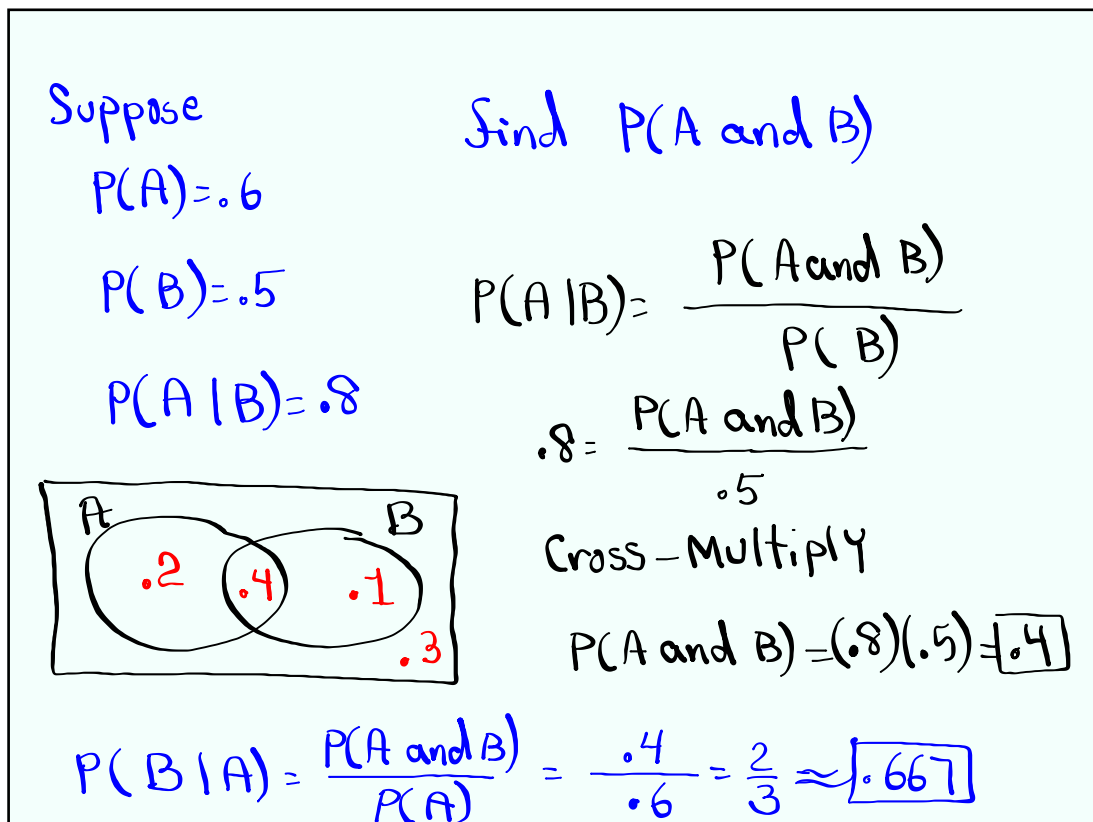 Suppose
P(A)=.6
P(B)=.5
P(A|B)=.8
find P(A and B)
P(A|B)= P(A and B) / P(B)
.8= P(A and B) / .5
Cross-Multiply
P(A and B)=(.8)(.5)=.4
A B
.2 .4 .1
.3
P(B|A) = P(A and B) / P(A) = .4 / .6 = 2 / 3 ≈ .667